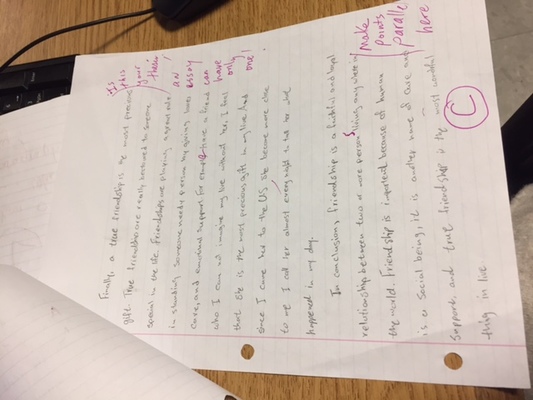 Finally, a true friendship is the most precious
gift. True friendship are really because to become
special in the life. Friendships are playing a great role
in standing someone needy person by giving loves
care, and emotional support. For example, have a friend
who I can not imagine my live without her, I feel
that she is the most precious gift in my live. And
since I came here to the US she become more close
to me I call her almost every night to tell her what
happened in my day.
In conclusion, friendship is a faithful and loyal
relationship between two or more persons living any where in
the world. Friendship is important because of human
is a social being, it is another name of care and
support, and true friendship is the most wonderful
thing in live
Is this your thesis?
an essay can have only one!
Make points parallel here
C